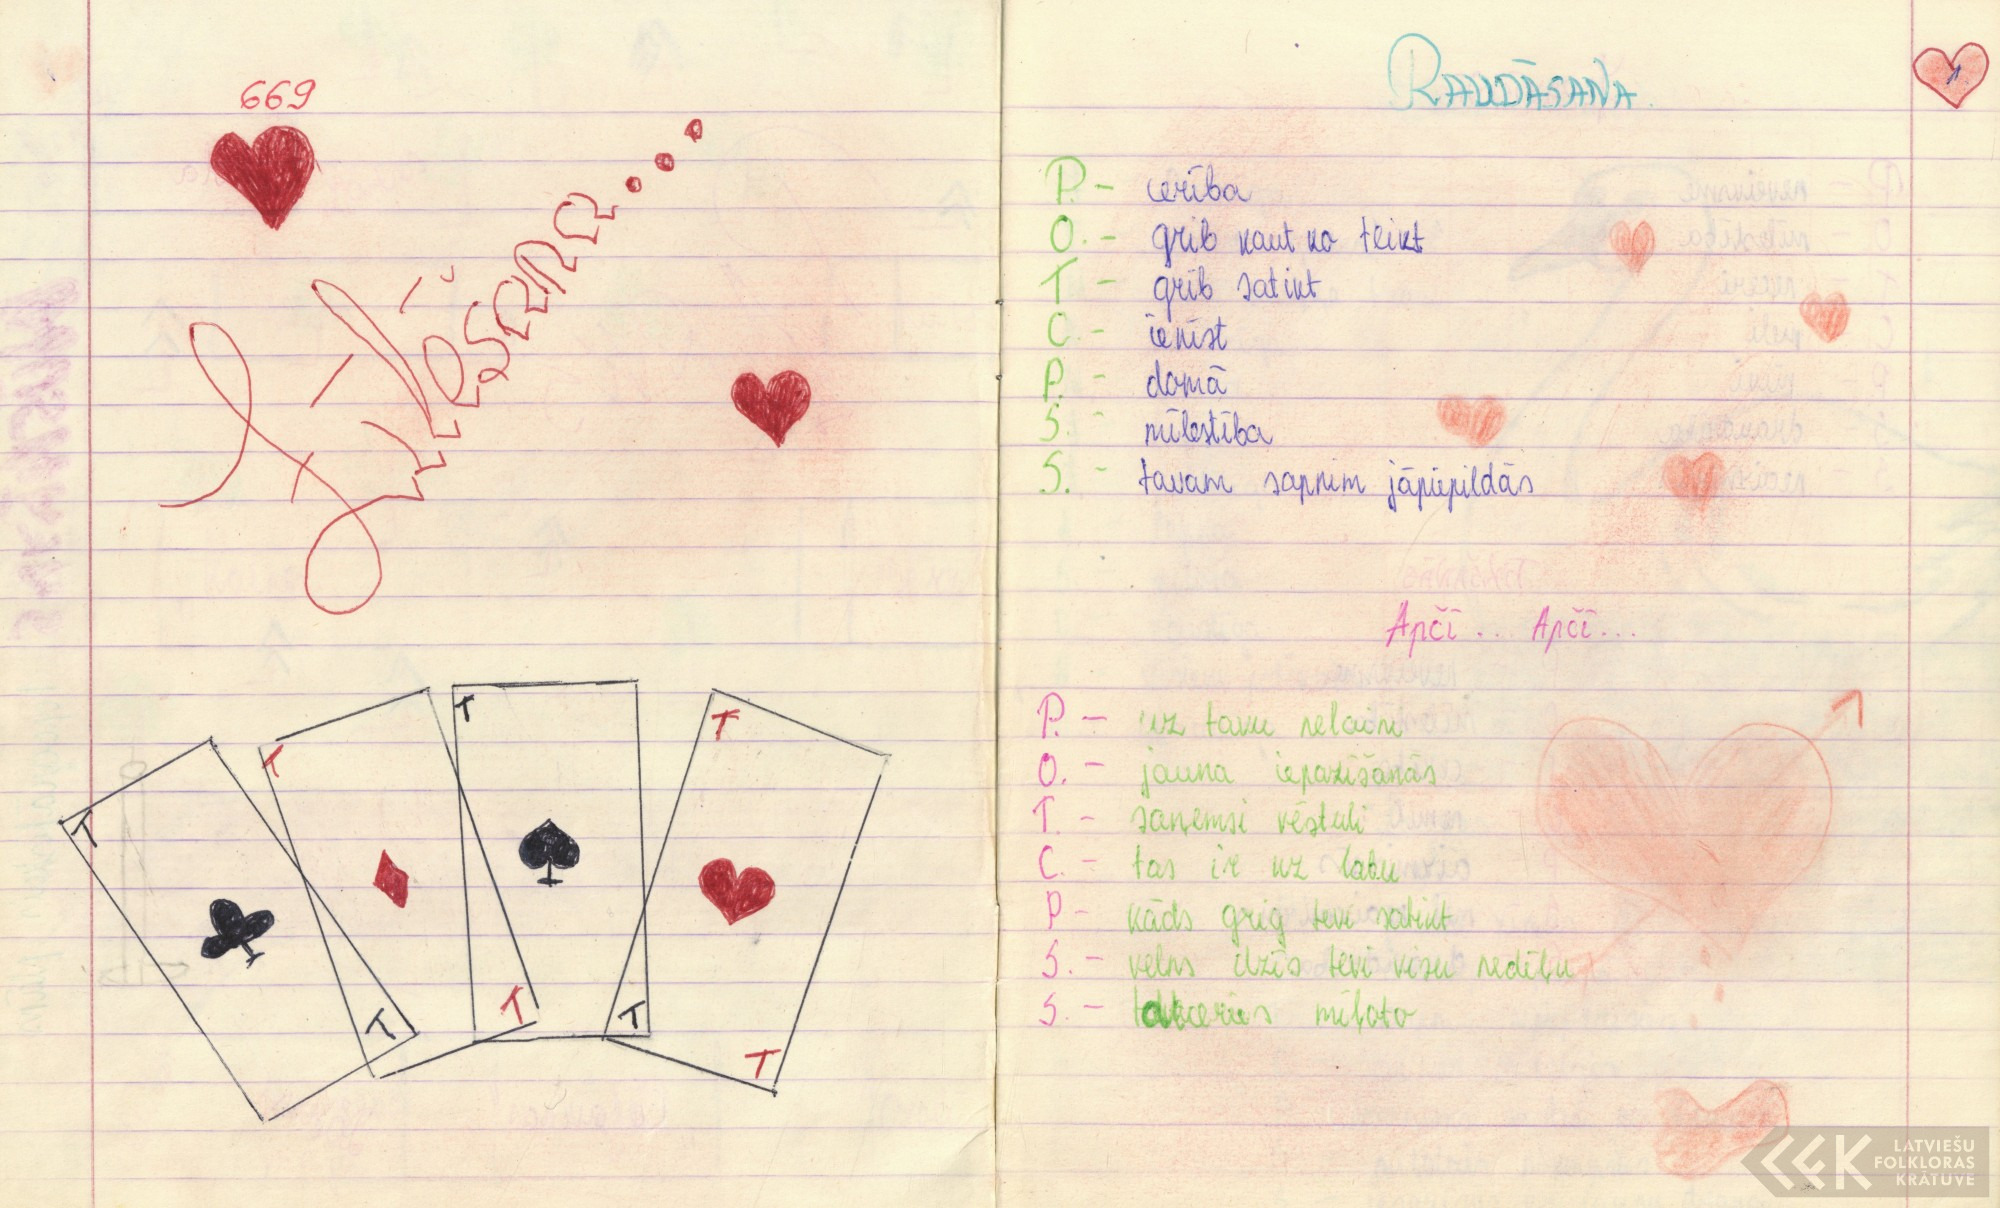 669
Zīlēšana...
T
T
T
T
T
T
T
T
RAUDĀŠANA.
1
P. - cerība
O. - grib kaut ko teikt
T - grib satikt
C - ienīst
P. - domā
S. - mīlestība
S. - tavam sapnim jāpiepildās
Apčī... Apčī...
P. - uz tavu nelaimi
O. - jauna iepazīšanās
T. - saņemsi vēstuli
C - tas ir uz labu
P - kāds grig tevi satikt
S. - velns dzīs tevi visu nedēļu
S. - mīļoto
LATVIEŠU
FOLKLORAS
KRĀTUVE